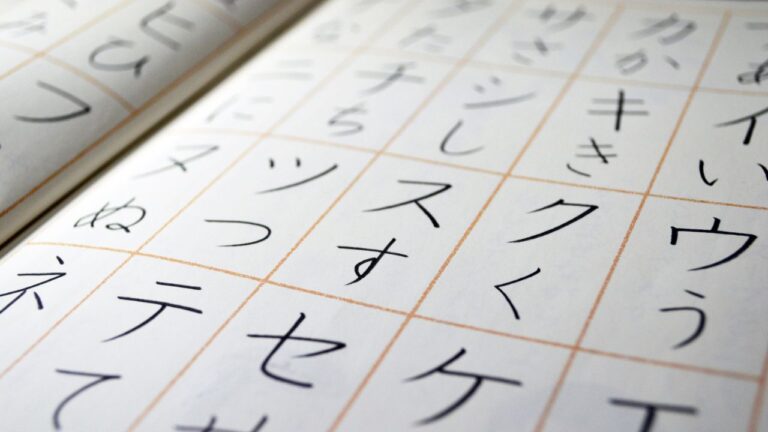 あ イ い ウ う エ
カ か キ き ク く ケ
サ さ シ し ス す セ
た チ ち ツ つ テ て
ニ に ヌ ぬ ネ
ヒ ひ フ